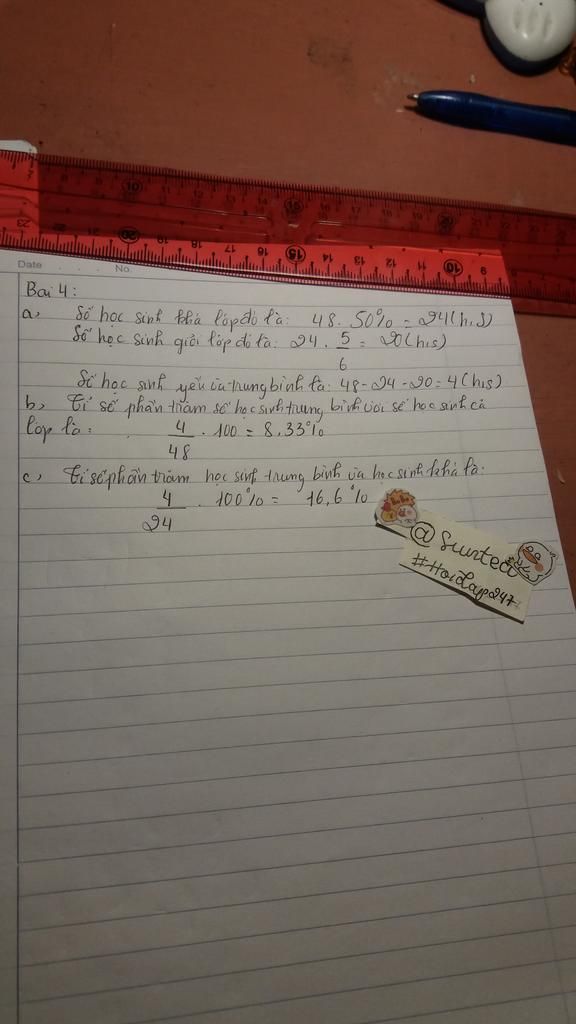 Date . . . . No.
Bài 4:
a, Số học sinh khá lớp đó là: 48 . 50% = 24 (h,s)
Số học sinh giỏi lớp đó là: 24 . 5/6 = 20 (h,s)
Số học sinh yếu và trung bình là: 48 - 24 - 20 = 4 (h,s)
b, Tỉ số phần trăm số học sinh trung bình với số học sinh cả
lớp là: 4/48 . 100 = 8,33%
c, Tỉ số phần trăm học sinh trung bình và học sinh khá là:
4/24 . 100% = 16,6%
@Suntea
#Hoidap247